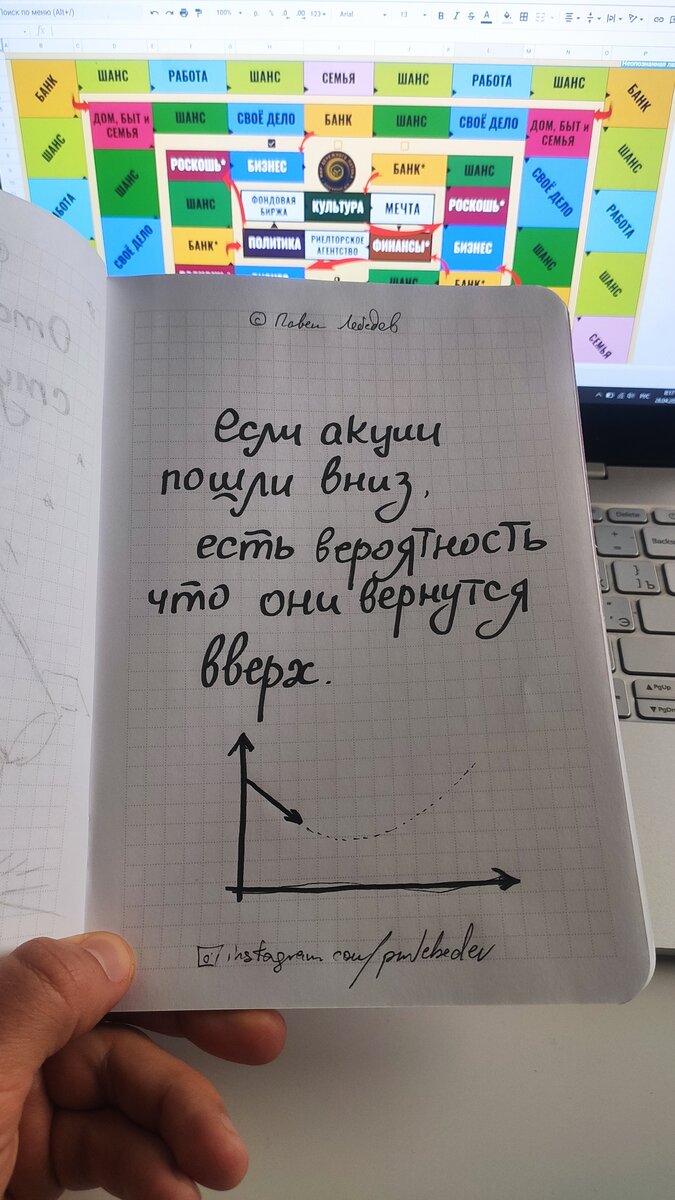 Поиск по меню (Alt+/)
100%
р. % .0 .00 123
Arial
13
B I S A
fx
A B C D E F G H I J K L M N O P
БАНК ШАНС РАБОТА ШАНС СЕМЬЯ ШАНС РАБОТА ШАНС БАНК
ДОМ, БЫТ и СЕМЬЯ ШАНС СВОЁ ДЕЛО БАНК ШАНС СВОЁ ДЕЛО ДОМ, БЫТ и СЕМЬЯ
ШАНС РОСКОШЬ* БИЗНЕС БАНК* ШАНС ШАНС
ШАНС ФОНДОВАЯ БИРЖА КУЛЬТУРА МЕЧТА РОСКОШЬ* СВОЁ ДЕЛО РАБОТА
ШАНС
СВОЁ ДЕЛО БАНК* ПОЛИТИКА РИЕЛТОРСКОЕ АГЕНТСТВО ФИНАНСЫ* БИЗНЕС ШАНС ШАНС
ШАНС БАНК*
СЕМЬЯ
РУС
Delete
Backs
PgUp
PgDn
© Павел Лебедев
если акции
пошли вниз,
есть вероятность
что они вернутся
вверх.
instagram com/pmlebedev